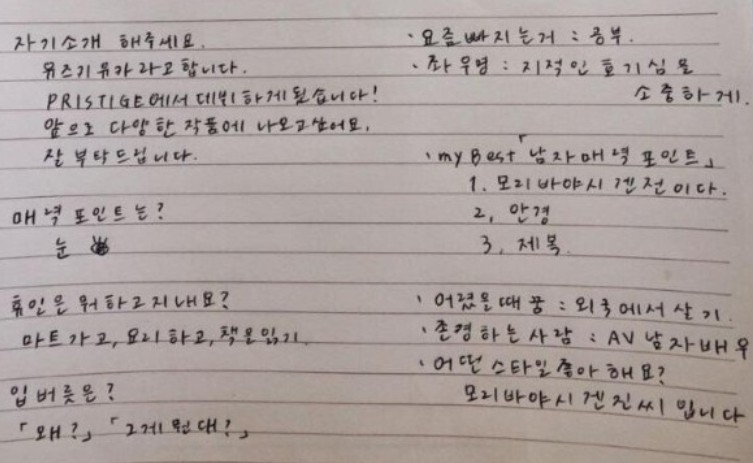 자기소개 해주세요.
유즈키 유카 라고 합니다.
PRISTIGE에서 데뷔하게 됬습니다!
앞으로 다양한 작품에 나오고싶어요.
잘 부탁드립니다.
매력 포인트는?
눈
휴인은 뭐하고지내요?
마트 가고, 요리 하고, 책을읽기.
입버릇은?
「왜?」「그게 뭔대?」
· 요즘빠지는거 : 공부.
· 좌우명 : 지적인 호기심을
소중하게.
· my Best 「남자매력 포인트」
1. 모리바야시 겐전이다.
2, 안경
3, 제복
· 어렸을때 꿈 : 외국에서 살기.
· 존경하는 사람 : AV 남자배우
· 어떤 스타일 좋아해요?
모리바야시 겐진씨 입니다